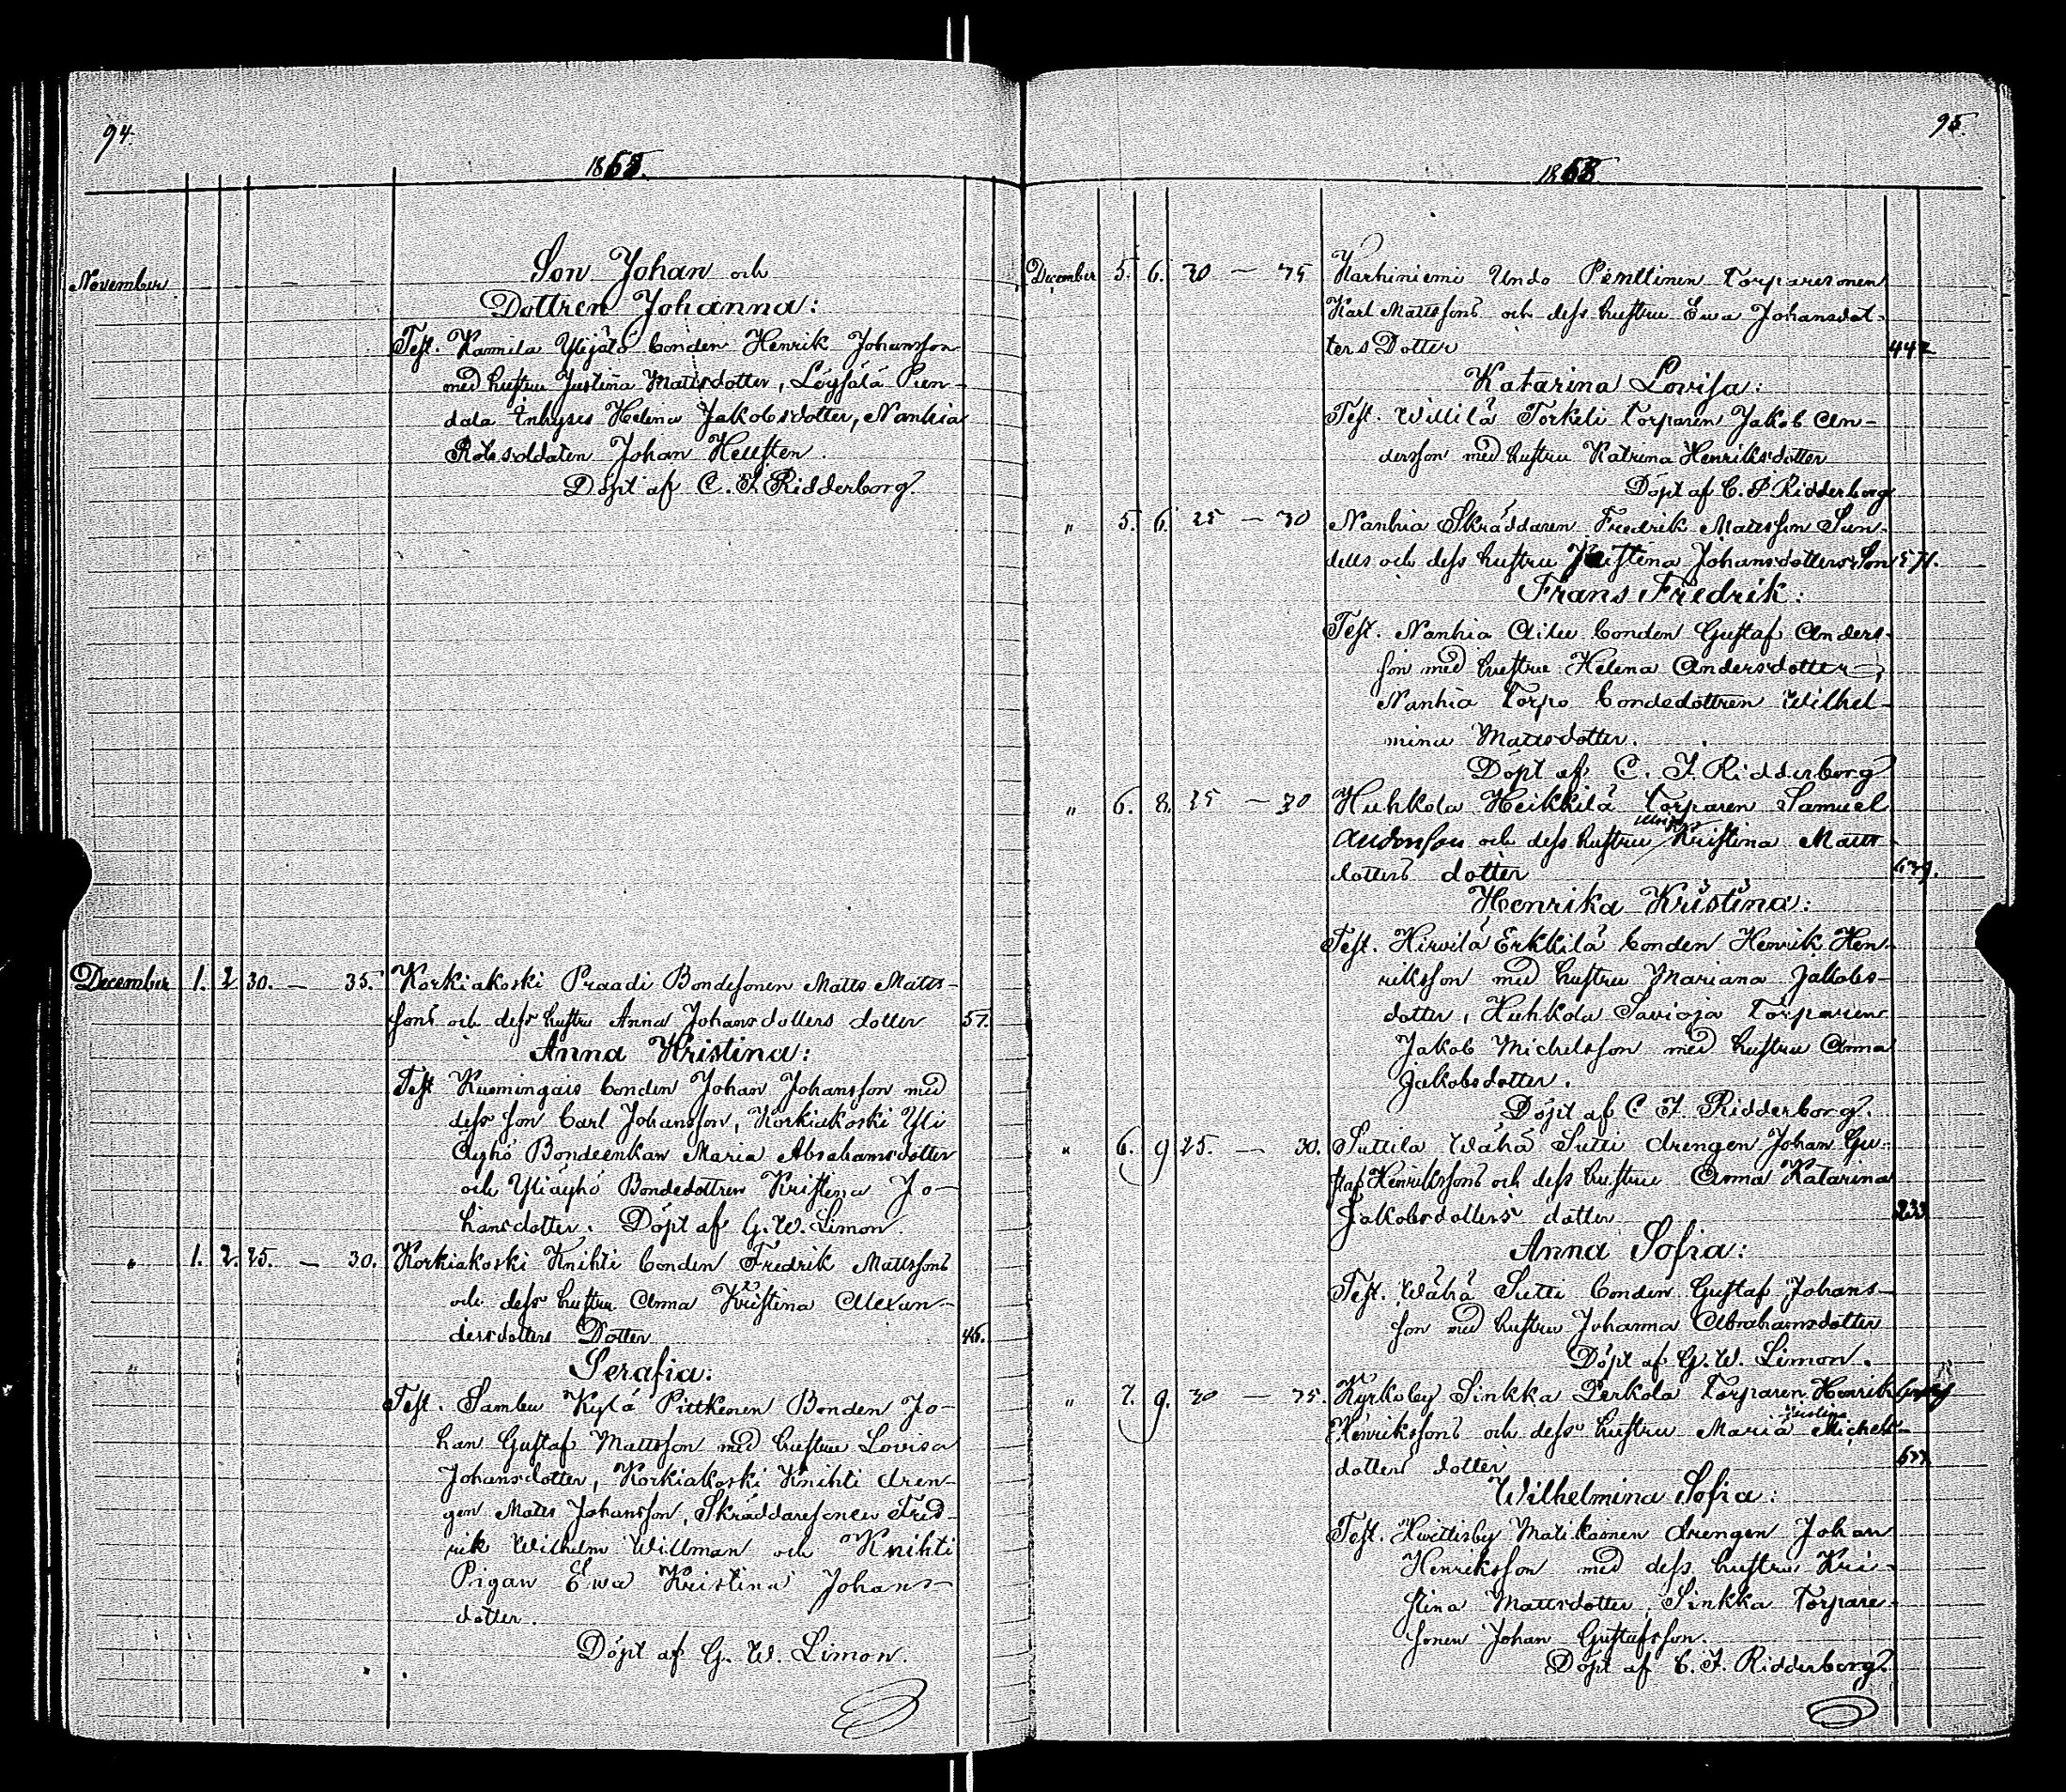 94.
1868.
November
Son Johan och
Dottren Johanna:
Test. Kamila Ylijälö bonden Henrik Johansson
med hustru Justina Mattsdotter, Löysälä Pun-
dala Inhyses Helena Jakobsdotter, Nanhia
Rotesoldaten Johan Hellsten.
Döpt af C. F. Ridderborg.
December 1. 2. 30. — 35. Korkiakoski Praadi Bondesonen Matts Matts-
sons och dess hustru Anna Johansdotters dotter 57.
Anna Kristina:
Test. Kusmingais bonden Johan Johansson med
dess son Carl Johansson, Korkiakoski Yli
Äyhö Bondeenkan Maria Abrahamsdotter
och Yliäyhö Bondedottren Kristina Jo-
hansdotter. Döpt af G. W. Limon.
" 1. 2. 25. — 30. Korkiakoski Knihti bonden Fredrik Mattssons
och dess hustru Anna Kristina Alexan-
dersdotters Dotter 46.
" Serafia:
Test. Sambu Kylä Pittkenen Bonden Jo-
han Gustaf Mattsson med hustru Lovisa
Johansdotter, Korkiakoski Knihti dren-
gen Matts Johansson, Skräddaresonen Fred-
rik Wilhelm Willman och Knihti
Pigan Ewa Kristina Johans-
dotter.
Döpt af G. W. Limon.
95.
1868.
December 5. 6. 30 — 35 Karhiniemi Undo Penttinen Torparesonen
Karl Mattssons och dess hustru Ewa Johansdot-
ters Dotter 442
Katarina Lovisa:
Test. Willilä Torkeli Torparen Jakob An-
dersson med hustru Katrina Henriksdotter
Döpt af C. F. Ridderborg
" 5. 6. 25 — 30 Nanhia Skräddaren Fredrik Mattsson Sun-
dells och dess hustru Justina Johansdotters Son 571.
Frans Fredrik:
Test. Nanhia Ailu bonden Gustaf Anders-
son med hustru Helena Andersdotter,
Nanhia Torpo bondedottren Wilhel-
mina Mattsdotter.
Döpt af C. F. Ridderborg
" 6. 8. 25 — 30 Huhkola Heikkilä Torparen Samuel
Andersson och dess hustru Ulrika Kristina Matts-
dotters dotter 639.
Henrika Kristina:
Test. Hirvilä Erkkilä bonden Henrik Hen-
riksson med hustru Mariana Jakobs-
dotter, Huhkola Savioja Torparen
Jakob Michelsson med hustru Anna
Jakobsdotter.
Döpt af C. F. Ridderborg.
" 6. 9 25. — 30. Suttila Wähä Sutti drengen Johan Gu-
staf Henrikssons och dess hustru Anna Katarina
Jakobsdotters dotter 233
Anna Sofia:
Test. Wähä Sutti bonden Gustaf Johans-
son med hustru Johanna Abrahamsdotter
Döpt af G. W. Limon.
" 7. 9. 30 — 35. Kyrkoby Sinkka Perkola Torparen Henrik
Henrikssons och dess hustru Maria Kristina Michels-
dotters dotter
Wilhelmina Sofia:
Test. Hvittisby Matikainen drengen Johan
Henriksson med dess hustru Kri-
stina Mattsdotter, Sinkka Torpare-
sonen Johan Gustafsson.
Döpt af C. F. Ridderborg.